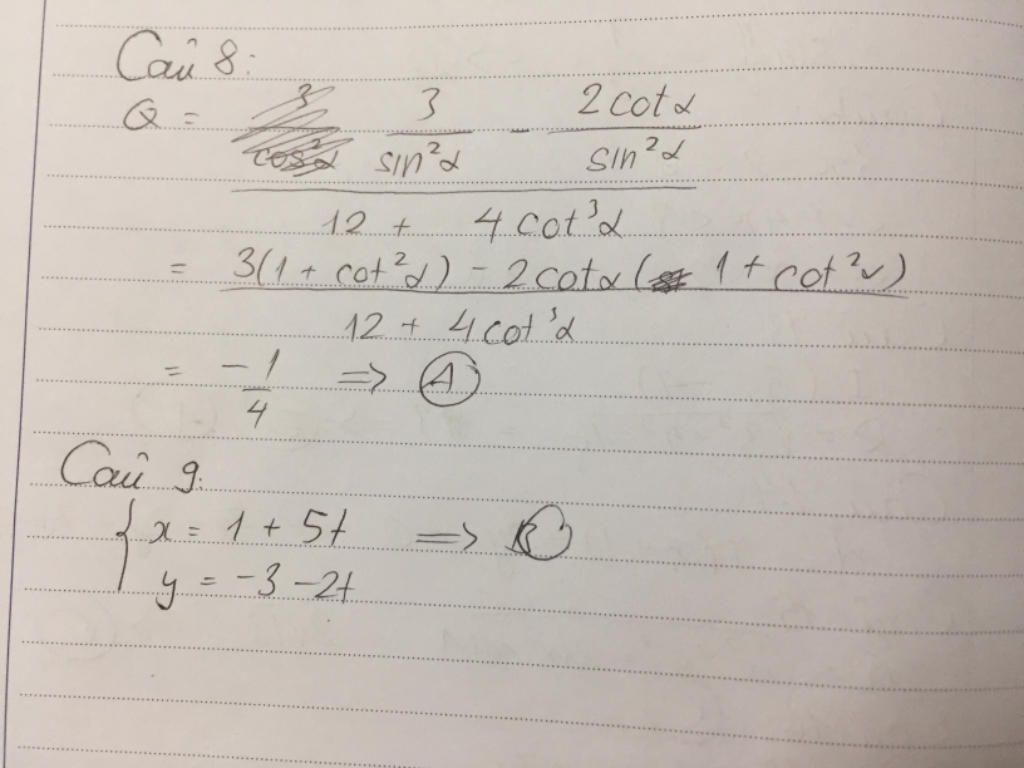 Câu 8:
Q = 3/sin²α - 2cotα/sin²α
12 + 4cot³α
= 3(1 + cot²α) - 2cotα(1 + cot²α)
12 + 4cot³α
= -1/4 => A
Câu 9:
{ x = 1 + 5t =>
y = -3 - 2t